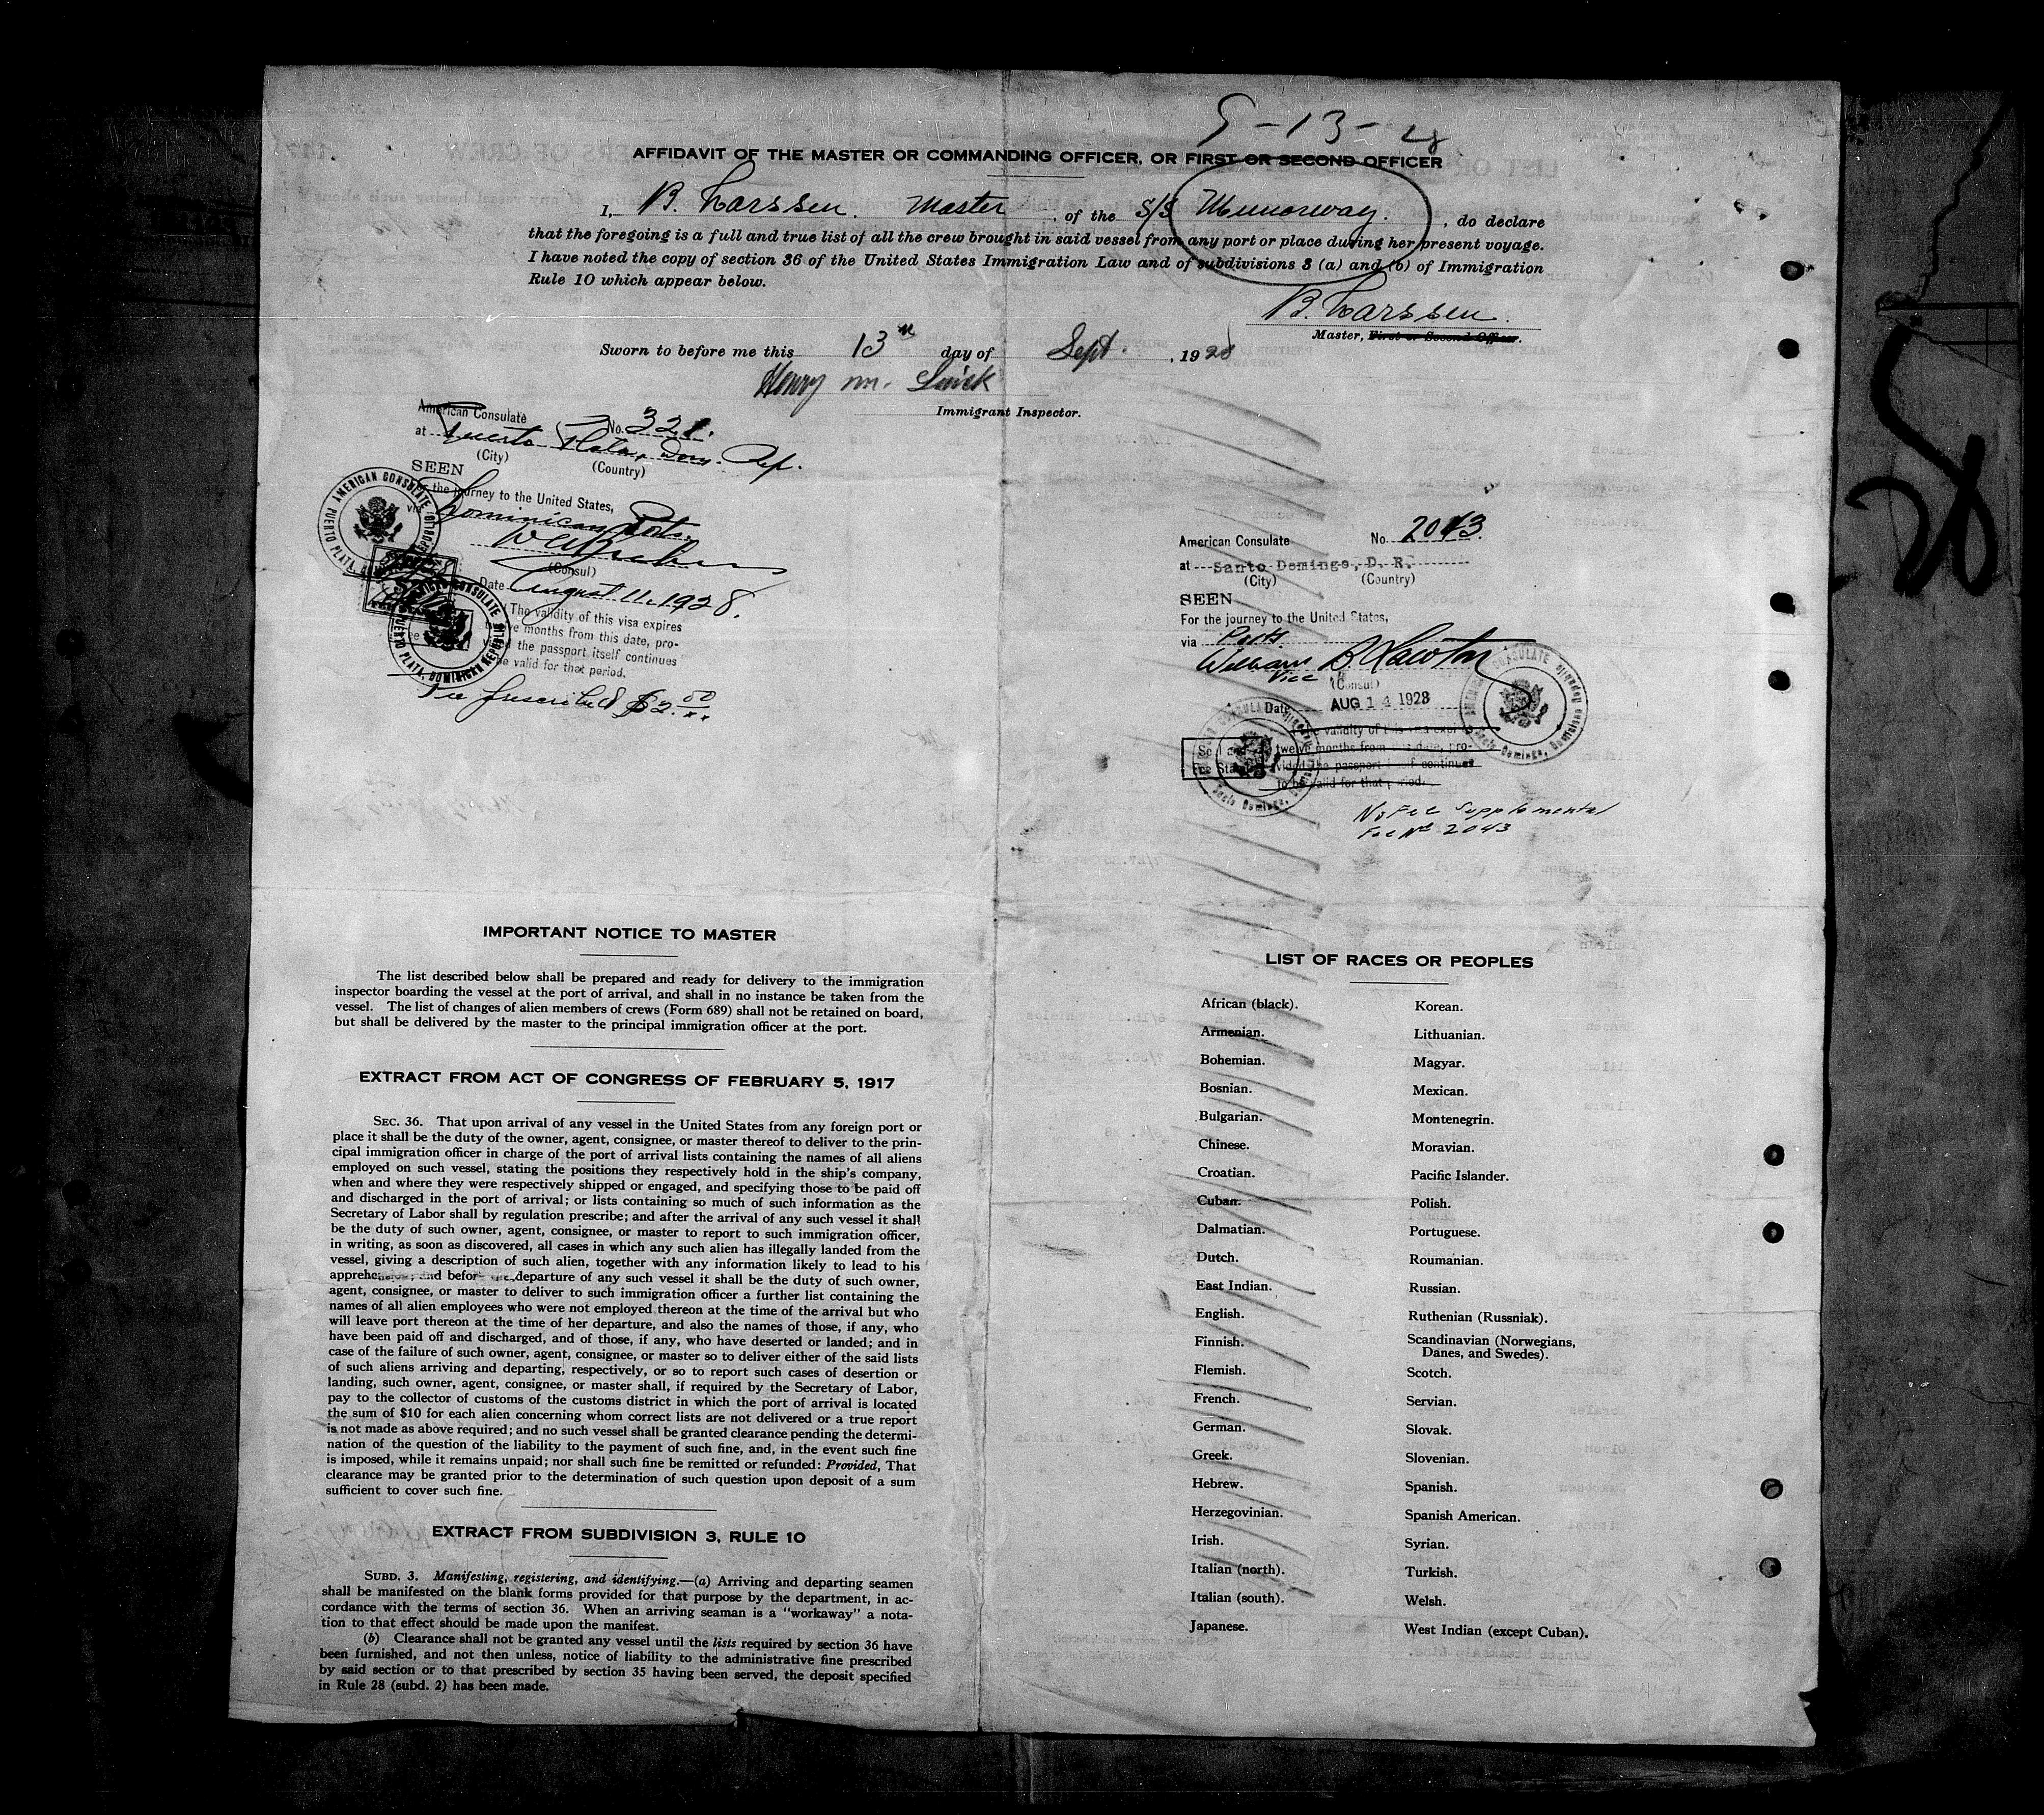 9-13-28
AFFIDAVIT OF THE MASTER OR COMMANDING OFFICER, OR FIRST OR SECOND OFFICER
I, B. Larssen. Master, of the S/S Munorway., do declare
that the foregoing is a full and true list of all the crew brought in said vessel from any port or place during her present voyage.
I have noted the copy of section 36 of the United States Immigration Law and of subdivisions 3 (a) and (b) of Immigration
Rule 10 which appear below.
B. Larssen.
Master, First or Second Officer.
Sworn to before me this 13th day of Sept., 1928
Henry M.
Immigrant Inspector.
American Consulate No. 321.
at Puerto Plata, Dom. Rep.
(City) (Country)
SEEN
For the journey to the United States,
via Dominican Ports.
(Consul)
Date August 11, 1928.
The validity of this visa expires
twelve months from this date, pro-
vided the passport itself continues
to be valid for that period.
Fee prescribed $2.00
AMERICAN CONSULATE
PUERTO PLATA, DOMINICAN REPUBLIC
AMERICAN CONSULATE
PUERTO PLATA, DOMINICAN REPUBLIC
American Consulate No. 2043.
at Santo Domingo, D. R.
(City) (Country)
SEEN
For the journey to the United States,
via Ports.
William B. Lawton
Vice (Consul)
Date AUG 14 1928
The validity of this visa expires
twelve months from this date, pro-
vided the passport itself continues
to be valid for that period.
No Fee Supplemental
Fee No 2043
IMPORTANT NOTICE TO MASTER
The list described below shall be prepared and ready for delivery to the immigration
inspector boarding the vessel at the port of arrival, and shall in no instance be taken from the
vessel. The list of changes of alien members of crews (Form 689) shall not be retained on board,
but shall be delivered by the master to the principal immigration officer at the port.
EXTRACT FROM ACT OF CONGRESS OF FEBRUARY 5, 1917
SEC. 36. That upon arrival of any vessel in the United States from any foreign port or
place it shall be the duty of the owner, agent, consignee, or master thereof to deliver to the prin-
cipal immigration officer in charge of the port of arrival lists containing the names of all aliens
employed on such vessel, stating the positions they respectively hold in the ship's company,
when and where they were respectively shipped or engaged, and specifying those to be paid off
and discharged in the port of arrival; or lists containing so much of such information as the
Secretary of Labor shall by regulation prescribe; and after the arrival of any such vessel it shall
be the duty of such owner, agent, consignee, or master to report to such immigration officer,
in writing, as soon as discovered, all cases in which any such alien has illegally landed from the
vessel, giving a description of such alien, together with any information likely to lead to his
apprehension; and before the departure of any such vessel it shall be the duty of such owner,
agent, consignee, or master to deliver to such immigration officer a further list containing the
names of all alien employees who were not employed thereon at the time of the arrival but who
will leave port thereon at the time of her departure, and also the names of those, if any, who
have been paid off and discharged, and of those, if any, who have deserted or landed; and in
case of the failure of such owner, agent, consignee, or master so to deliver either of the said lists
of such aliens arriving and departing, respectively, or so to report such cases of desertion or
landing, such owner, agent, consignee, or master shall, if required by the Secretary of Labor,
pay to the collector of customs of the customs district in which the port of arrival is located
the sum of $10 for each alien concerning whom correct lists are not delivered or a true report
is not made as above required; and no such vessel shall be granted clearance pending the determi-
nation of the question of the liability to the payment of such fine, and, in the event such fine
is imposed, while it remains unpaid; nor shall such fine be remitted or refunded: Provided, That
clearance may be granted prior to the determination of such question upon deposit of a sum
sufficient to cover such fine.
EXTRACT FROM SUBDIVISION 3, RULE 10
SUBD. 3. Manifesting, registering, and identifying.—(a) Arriving and departing seamen
shall be manifested on the blank forms provided for that purpose by the department, in ac-
cordance with the terms of section 36. When an arriving seaman is a "workaway" a nota-
tion to that effect should be made upon the manifest.
(b) Clearance shall not be granted any vessel until the lists required by section 36 have
been furnished, and not then unless, notice of liability to the administrative fine prescribed
by said section or to that prescribed by section 35 having been served, the deposit specified
in Rule 28 (subd. 2) has been made.
LIST OF RACES OR PEOPLES
African (black).
Armenian.
Bohemian.
Bosnian.
Bulgarian.
Chinese.
Croatian.
Cuban.
Dalmatian.
Dutch.
East Indian.
English.
Finnish.
Flemish.
French.
German.
Greek.
Hebrew.
Herzegovinian.
Irish.
Italian (north).
Italian (south).
Japanese.
Korean.
Lithuanian.
Magyar.
Mexican.
Montenegrin.
Moravian.
Pacific Islander.
Polish.
Portuguese.
Roumanian.
Russian.
Ruthenian (Russniak).
Scandinavian (Norwegians,
Danes, and Swedes).
Scotch.
Servian.
Slovak.
Slovenian.
Spanish.
Spanish American.
Syrian.
Turkish.
Welsh.
West Indian (except Cuban).